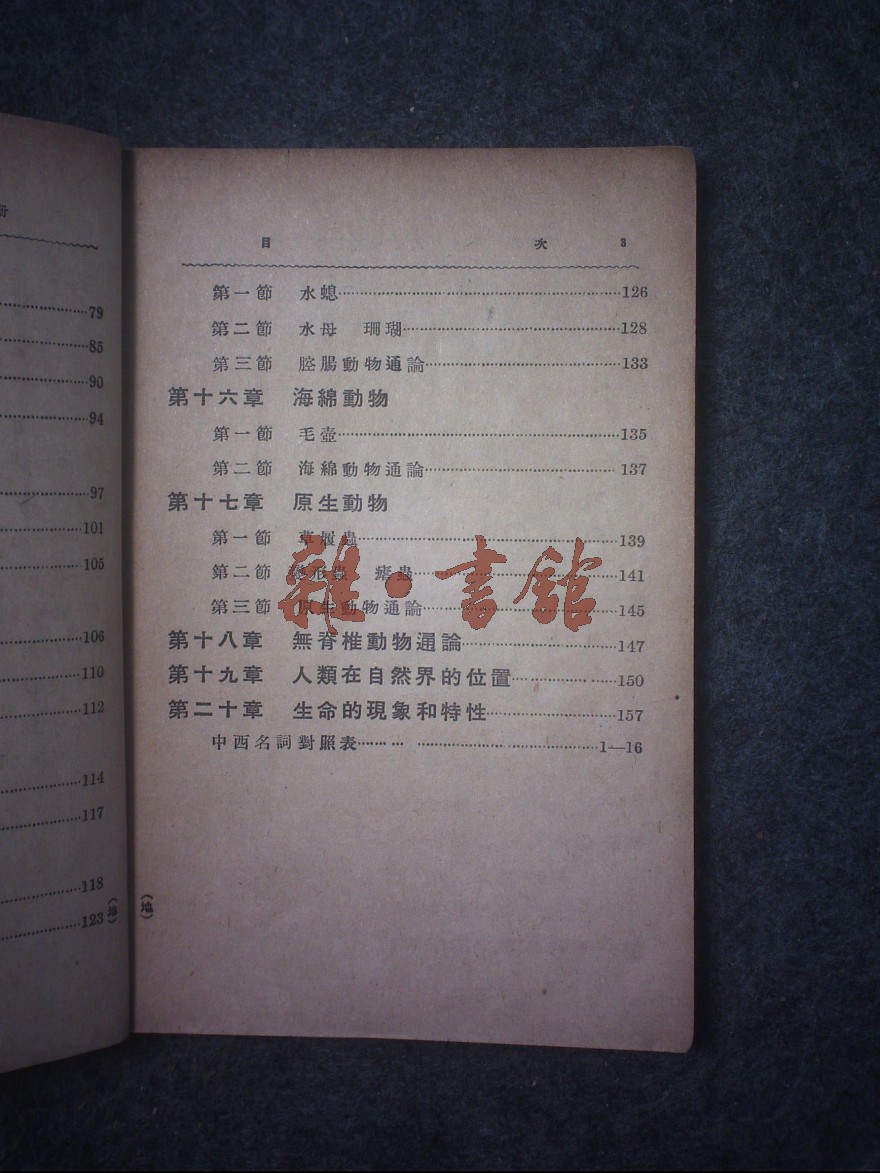 册
79
85
90
94
97
101
105
106
110
112
114
117
118
123
(地)
目 次 3
第一節 水螅 126
第二節 水母 珊瑚 128
第三節 腔腸動物通論 133
第十六章 海綿動物
第一節 毛壺 135
第二節 海綿動物通論 137
第十七章 原生動物
第一節 草履蟲 139
第二節 變形蟲 瘧蟲 141
第三節 原生動物通論 145
第十八章 無脊椎動物通論 147
第十九章 人類在自然界的位置 150
第二十章 生命的現象和特性 157
中西名詞對照表 1—16
(地)
雜·書館